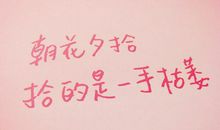 朝花夕拾
拾的是一手枯萎